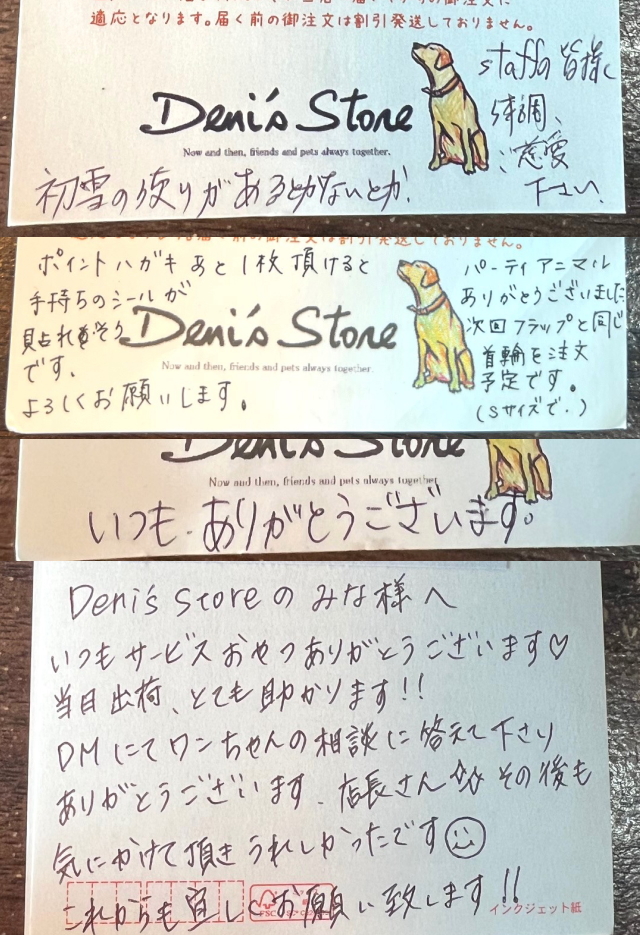 適応となります。届く前の御注文は割引発送しておりません。
Deni's Store
Now and then, friends and pets always together.
staffの皆様
体調、
ご慈愛
下さい、
初雪の便りがあるとかないとか、
届く前の御注文は割引発送しておりません。
ポイントハガキあと1枚頂けると
手持ちのシールが
貼れそう
です。
よろしくお願いします。
Deni's Store
Now and then, friends and pets always together.
パーティアニマル
ありがとうございました
次回フラップと同じ
首輪を注文
予定です。
(Sサイズで.)
Deni's Store
Now and then, friends and pets always together.
いつも、ありがとうございます。
Deni's Storeのみな様へ
いつもサービスおやつありがとうございます♡
当日出荷、とても助かります!!
DMにてワンちゃんの相談に答えて下さり
ありがとうございます、店長さん その後も
気にかけて頂きうれしかったです☺
これからも宜しくお願い致します!!
FSC
インクジェット紙